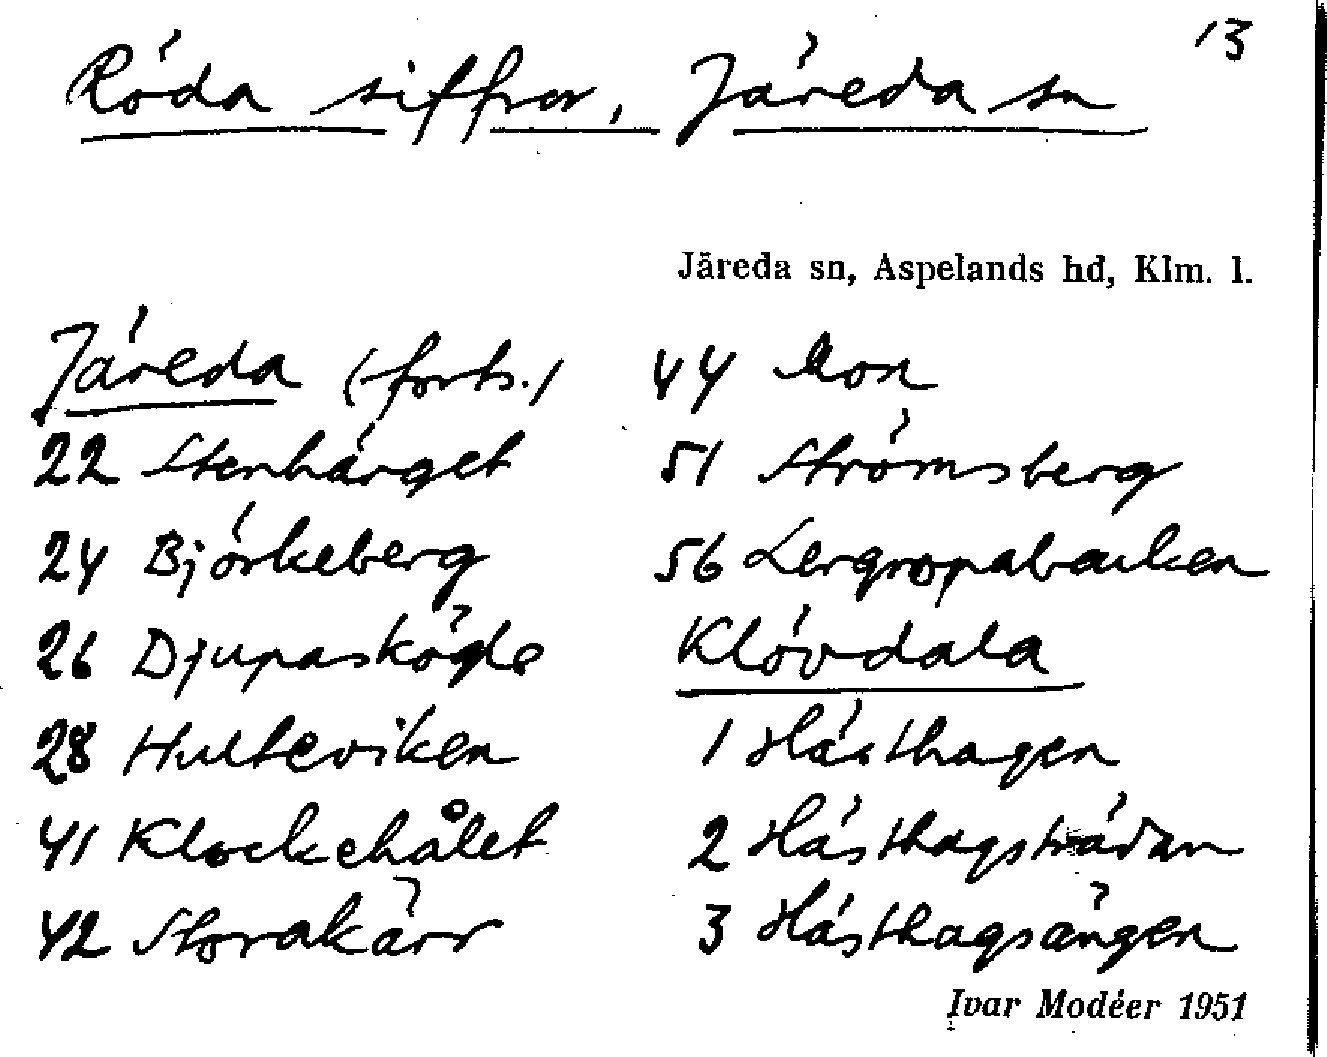 13
Röda siffror, Järeda sn
Järeda sn, Aspelands hd, Klm. l.
Järeda (forts.)
22 Stenbärget
24 Björkeberg
26 Djupaskögle
28 Hulteviken
41 Klockehålet
42 Storakärr
44 Mon
51 Strömsberg
56 Lergropabacken
Klövdala
1 Hästhagen
2 Hästhagsträdan
3 Hästhagsängen
Ivar Modéer 1951